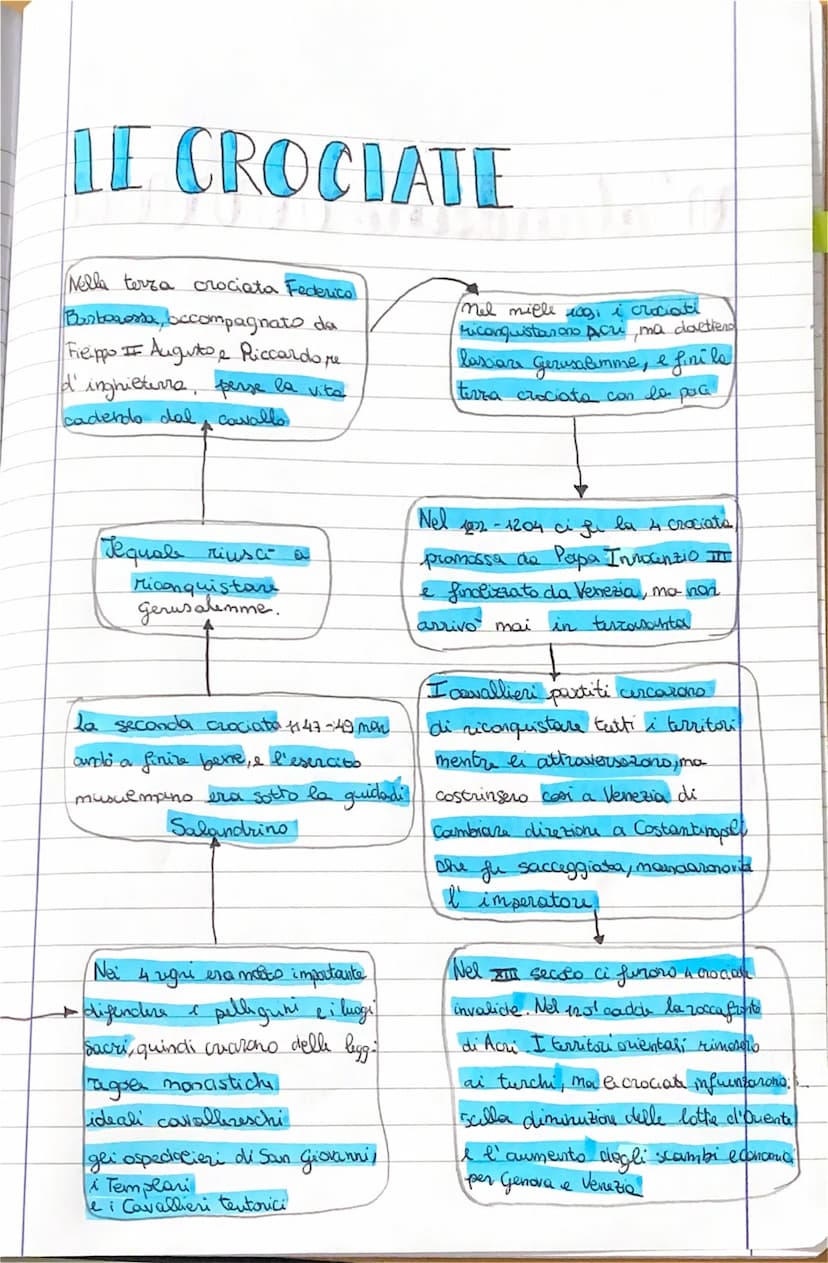 LE CROCIATE
Nei 4 regni era molto importante
difendere i pellegrini e i luogi
sacri, quindi crearono delle leggi
monastiche
ideali cavallereschi
gli ospedalieri di San Giovanni,
i Templari
e i Cavallieri teutonici
la seconda crociata 1147-49 non
andò a finire bene, e l'esercito
musulmano era sotto la guida di
Salandrino
Il quale riuscì a
riconquistare
Gerusalemme.
Nella terza crociata Federico
Barbarossa, accompagnato da
Filippo II Augusto e Riccardo re
d'inghilterra, perse la vita
cadendo dal cavallo
nel i crociati
riconquistarono Acri, ma dovettero
lasciare Gerusalemme, e finì la
terza crociata con la pace
Nel 1202-1204 ci fu la 4 crociata
promossa da Papa Innocenzio III
e finalizzato da Venezia, ma non
arrivò mai in terrasanta
I cavallieri partiti cercarono
di riconquistare tutti i territori
mentre li attraversarono, ma
costrinsero così a Venezia di
cambiare direzione a Costantinopoli
che fu sacceggiata, mandarono via
l'imperatore
Nel XIII secolo ci furono 4 crociate
invalide. Nel cadde la roccaforte
di Acri. I territori orientali rimasero
ai turchi, ma le crociate influenzarono:
sulla diminuzione delle lotte d'Oriente
e l'aumento degli scambi economici
per Genova e Venezia